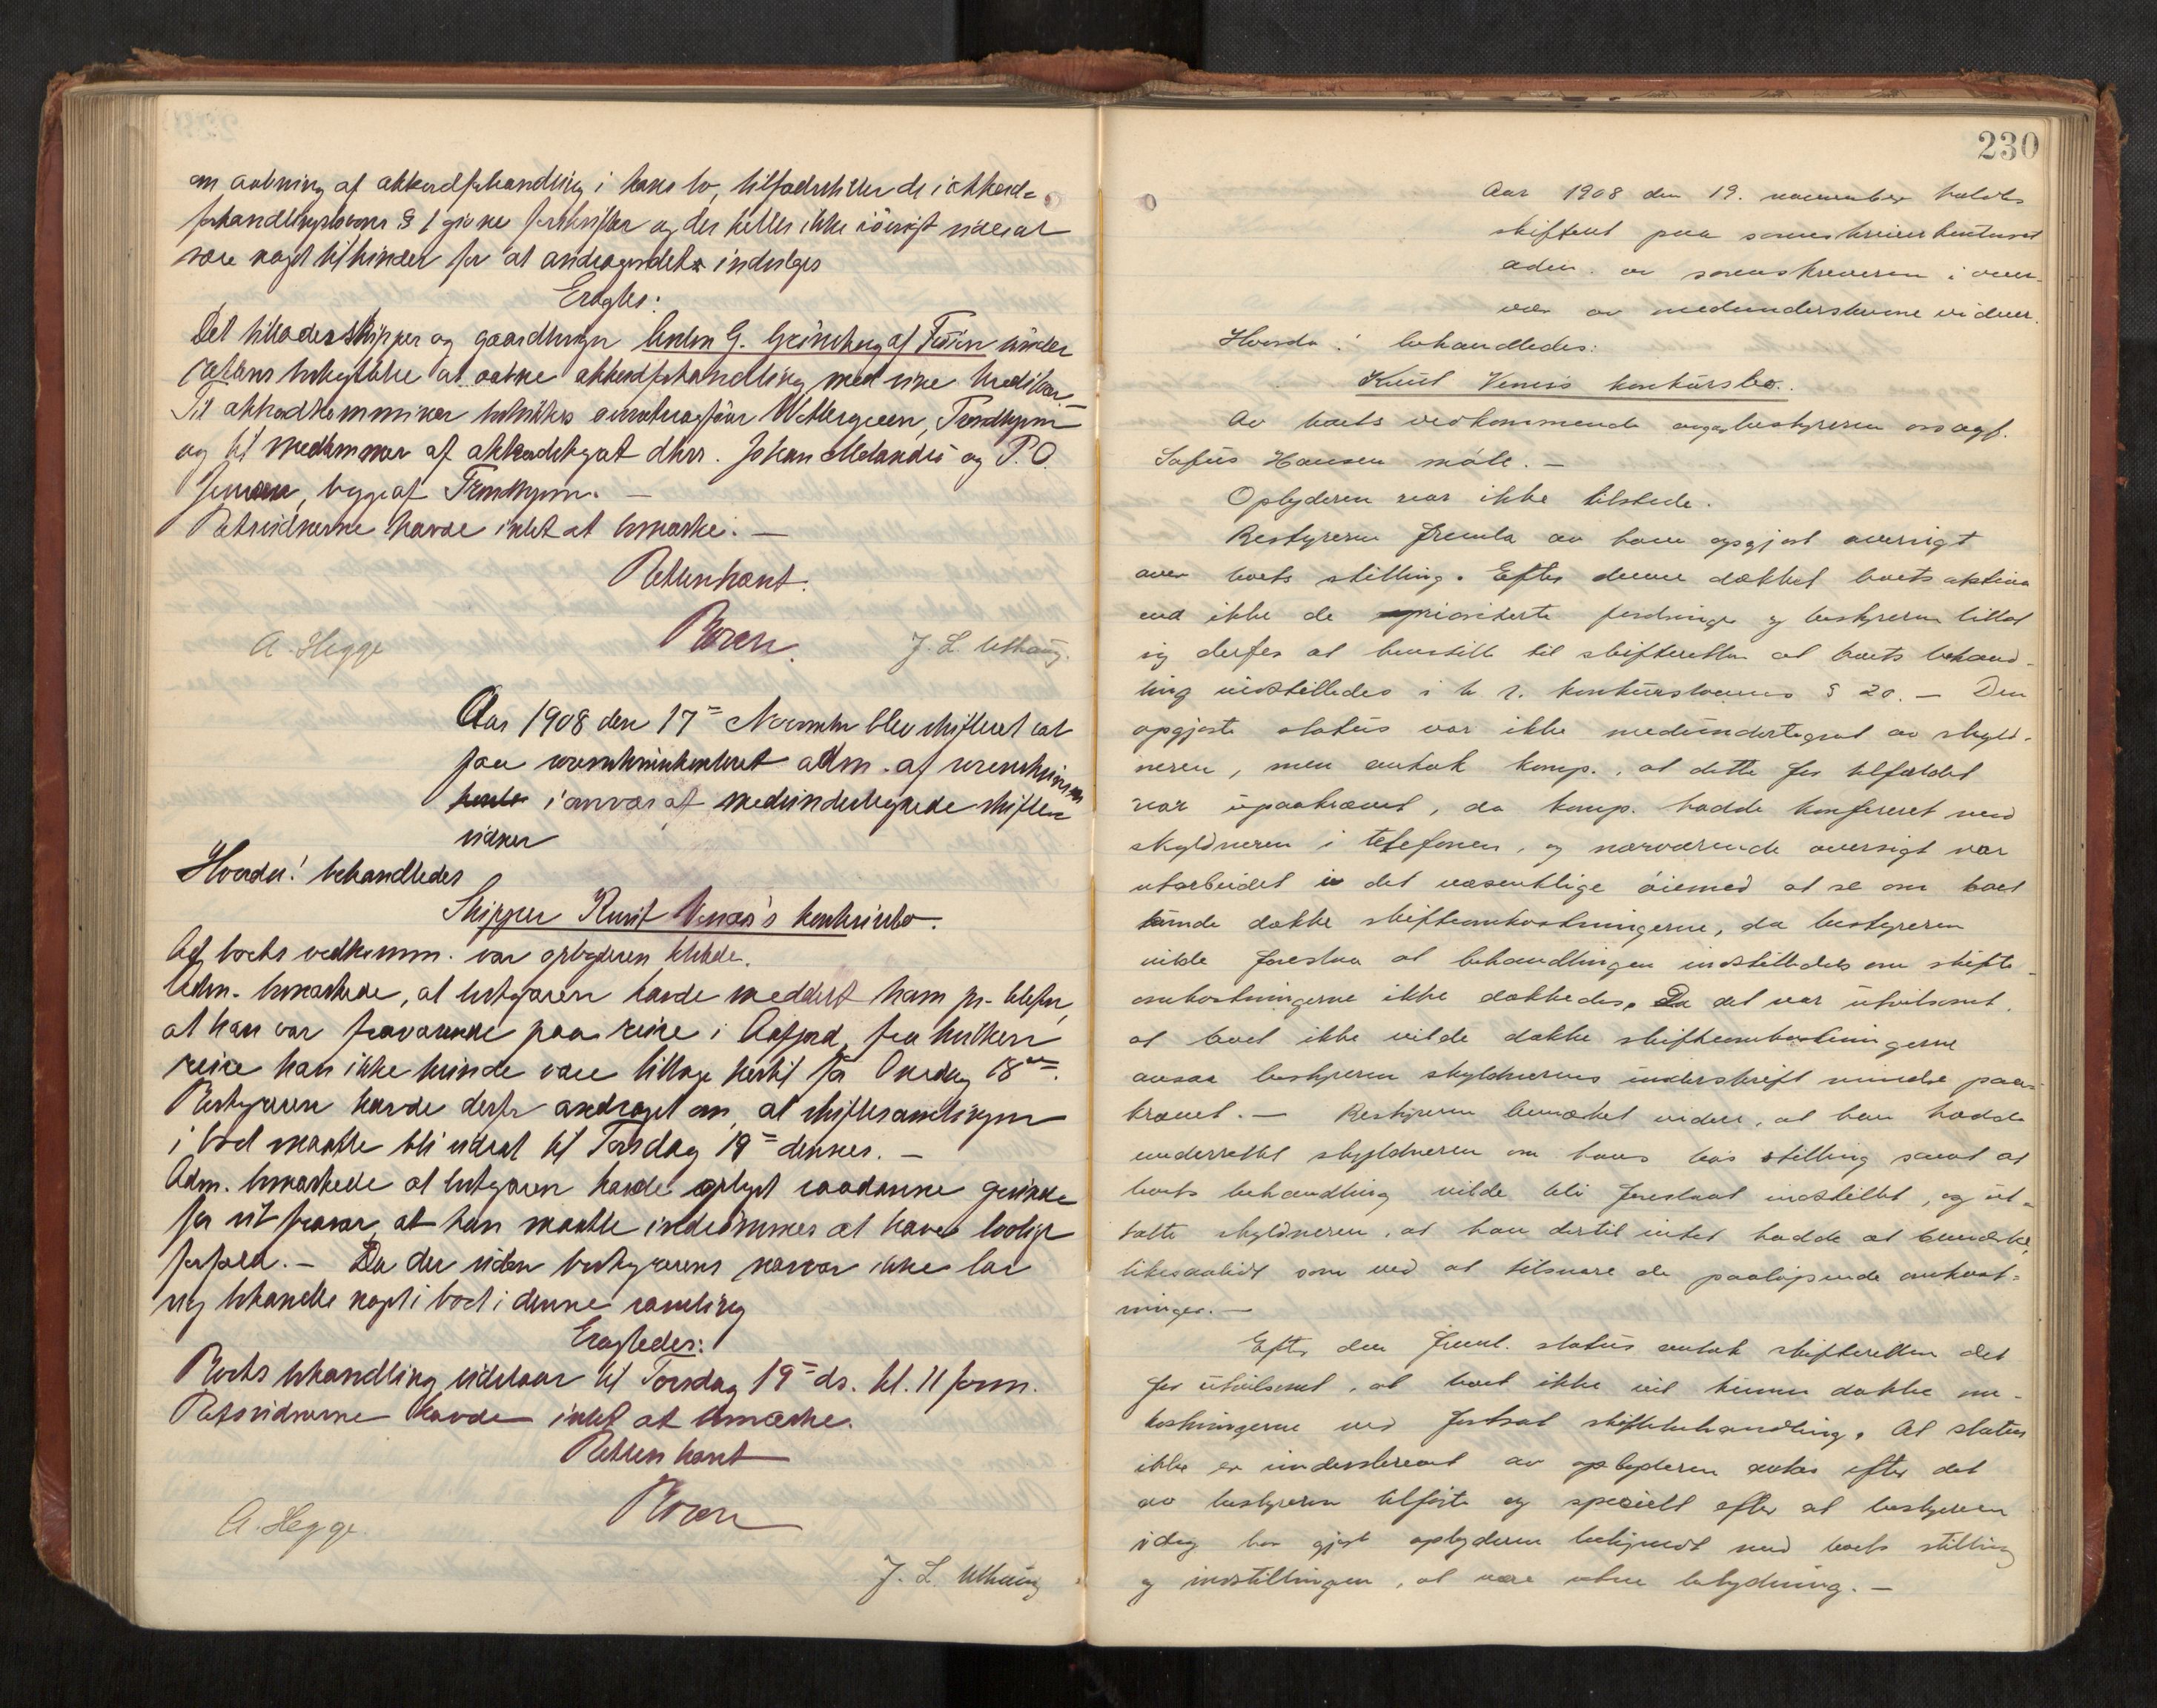 om aabning af akkordforhandling i hans bo, tilfredsstiller de i akkord-
forhandlingslovens § 1 givne forskrifter og der heller ikke iøvrigt sees at
være noget til hinder for at andragendet indvilges
Eragtes:
Det tillades skipper og gaardbruger G. af under
rettens beskyttelse at aabne akkordforhandling med sine kreditorer.
Til akkordkommissær beskikkes overretssagfører Wettergreen, Trondhjem
og til medlemmer af akkordstyret dhrr. Johan Melandsø og P. O.
begge af Trondhjem. —
Retsvidnerne havde intet at bemærke. —
Retten hævet.
A. Hegge J. L. Uthaug.
Aar 1908 den 17de November blev skifteret sat
paa sorenskriverkontoret adm. af sorenskriveren
i overvær af medundertegnede skifte-
vidner
Hvorda! behandledes
Skipper Knut Venæs's konkursbo.
Af boets vedkomm. var opbyderen tilstede.
Adm. bemærkede, at bestyreren havde meddelt ham pr. telefon,
at han var fraværende paa reise i Aafjord, fra hvilken
reise han ikke kunde være tilbage hertil før Onsdag 18de.
Bestyreren havde derfor andraget om, at skiftesamlingen
i boet maatte bli udsat til Torsdag 19de dennes. —
Adm. bemærkede at bestyreren havde oplyst saadanne grunde
for sit fravær, at han maatte indrømmes at have lovligt
forfald. — Da der uden bestyrerens nærvær ikke lar
sig behandle noget i boet i denne samling
Eragtedes:
Boets behandling udstaar til Torsdag 19de ds. kl. 11 form.
Retsvidnerne havde intet at bemærke.
Retten hævet
A. Hegge.
J. L. Uthaug
230
Aar 1908 den 19. november holdtes
skifteret paa sorenskriverkontoret
adm. av sorenskriveren i over-
vær av medunderskrevne vidner.
Hvorda! behandledes:
Knut Venæs konkursbo.
Av boets vedkommende bestyreren o.r.sagf.
Sofus Hansen møtte. —
Opbyderen var ikke tilstede.
Bestyreren fremla av ham opgjort oversigt
over boets stilling. Efter denne dækket boets aktiva
end ikke de prioriterte fordringer og bestyreren tillot
sig derfor at henstille til skifteretten at boets behand-
ling indstilledes i h. t. konkurslovens § 20. — Den
opgjorte status var ikke medundertegnet av skyld-
neren, men antok komp., at dette for tilfældet
var upaakrævet, da komp. hadde konfereret med
skyldneren i telefonen, og nærværende oversigt var
utarbeidet i det væsentlige øiemed at se om boet
kunde dække skifteomkostningerne, da bestyreren
vilde foreslaa at behandlingen indstilledes om skifte-
omkostningerne ikke dækkedes. Da det var utvilsomt,
at boet ikke vilde dække skifteomkostningerne
ansaa bestyreren skyldnerens underskrift mindre paa-
krævet. — Bestyreren bemærket videre, at han hadde
underrettet skyldneren om hans bos stilling samt at
boets behandling vilde bli foreslaat indstillet, og ut-
talte skyldneren, at han dertil intet hadde at bemærke,
likesaalidt som ved at tilsvare de paaløpende omkost-
ninger. —
Efter den freml. status antok skifteretten det
for utvilsomt, at boet ikke vil kunne dække om-
kostningerne ved fortsat skiftebehandling. At status
ikke er underskrevet av opbyderen antas efter det
av bestyreren tilførte og specielt efter at bestyreren
idag har gjort opbyderen bekjendt med boets stilling
og indstillingen, at være uten betydning. —